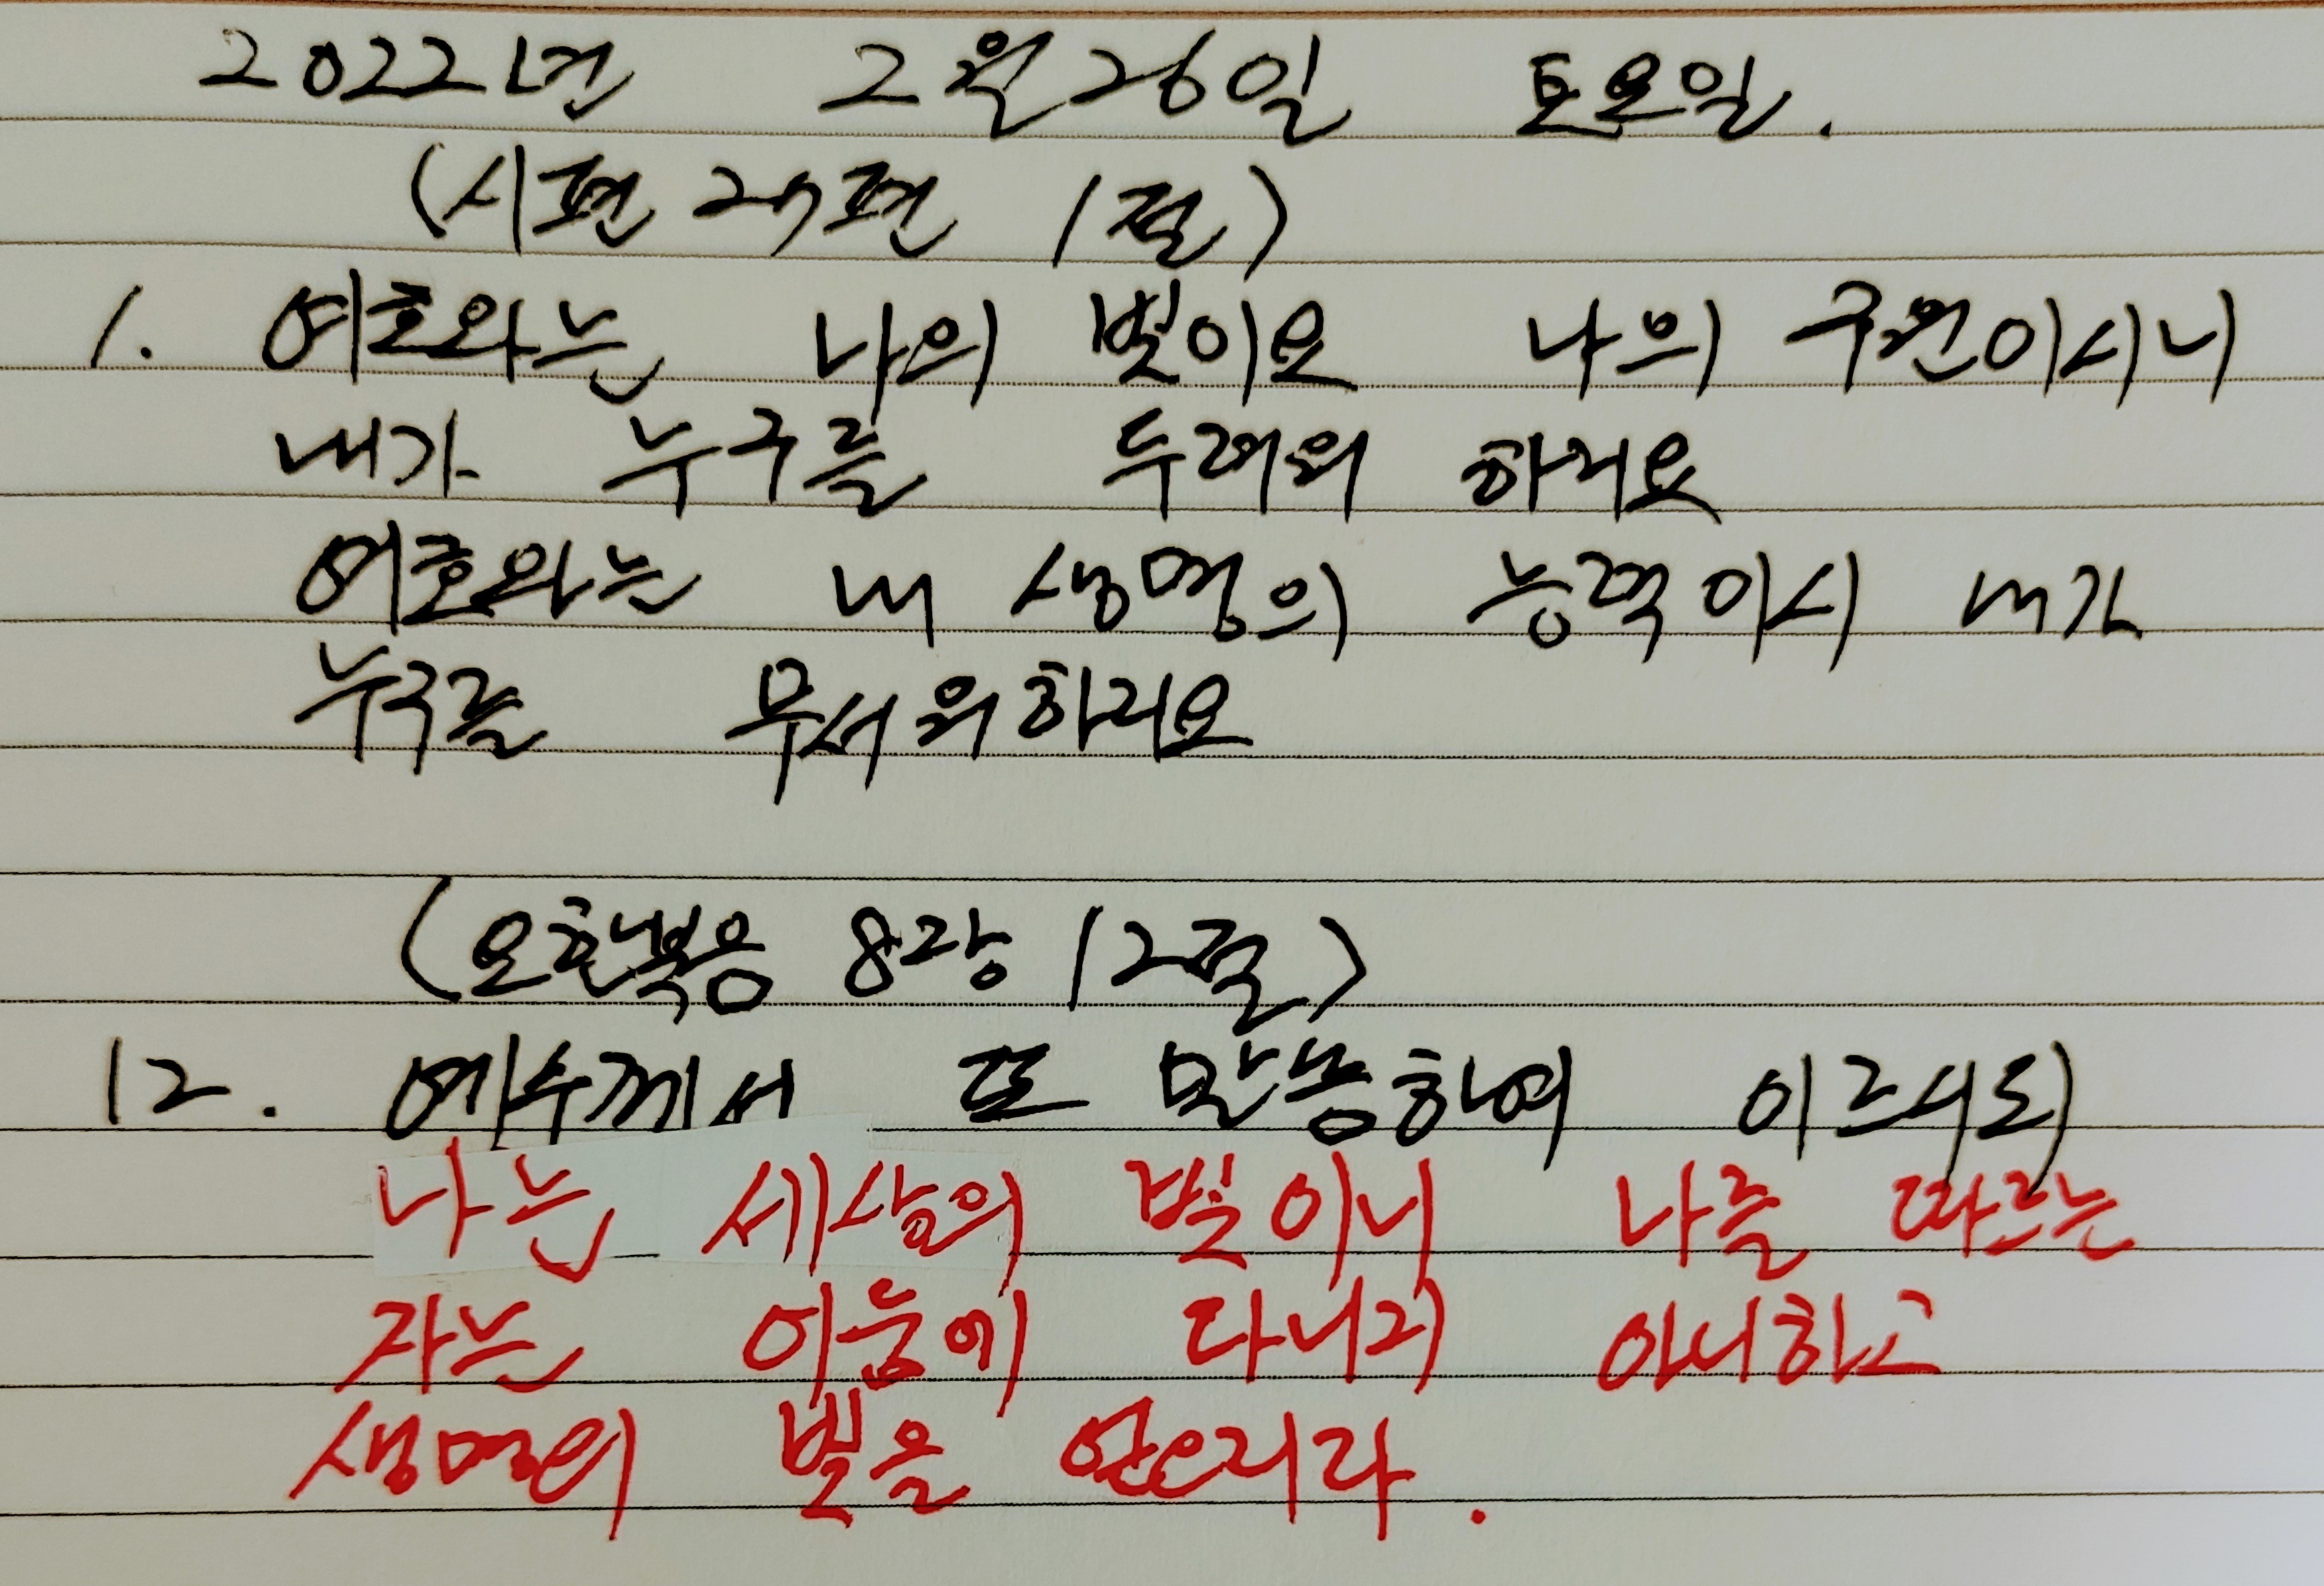 2022년 2월 26일 토요일.
(시편 27편 1절)
1. 여호와는 나의 빛이요 나의 구원이시니
내가 누구를 두려워 하리요
여호와는 내 생명의 능력이시 내가
누구를 무서워하리요
(요한복음 8장 12절)
12. 예수께서 또 말씀하여 이르시되
나는 세상의 빛이니 나를 따르는
자는 어둠에 다니지 아니하고
생명의 빛을 얻으리라.